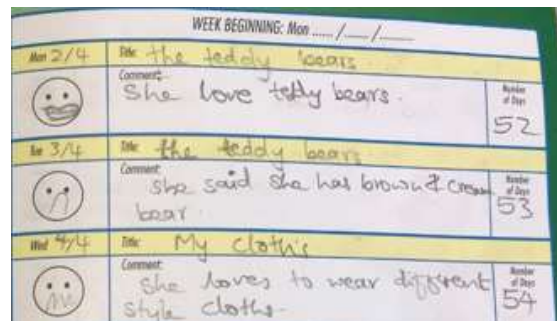 WEEK BEGINNING: Mon ...../...../.....
Mon 2/4 Title: the teddy bears
Comment:
She love teddy bears.
Number of Days
52
Tue 3/4 Title: the teddy bears
Comment:
She said she has brown & cream
bear.
Number of Days
53
Wed 4/4 Title: My cloth's
Comment:
She loves to wear different
style cloths.
Number of Days
54